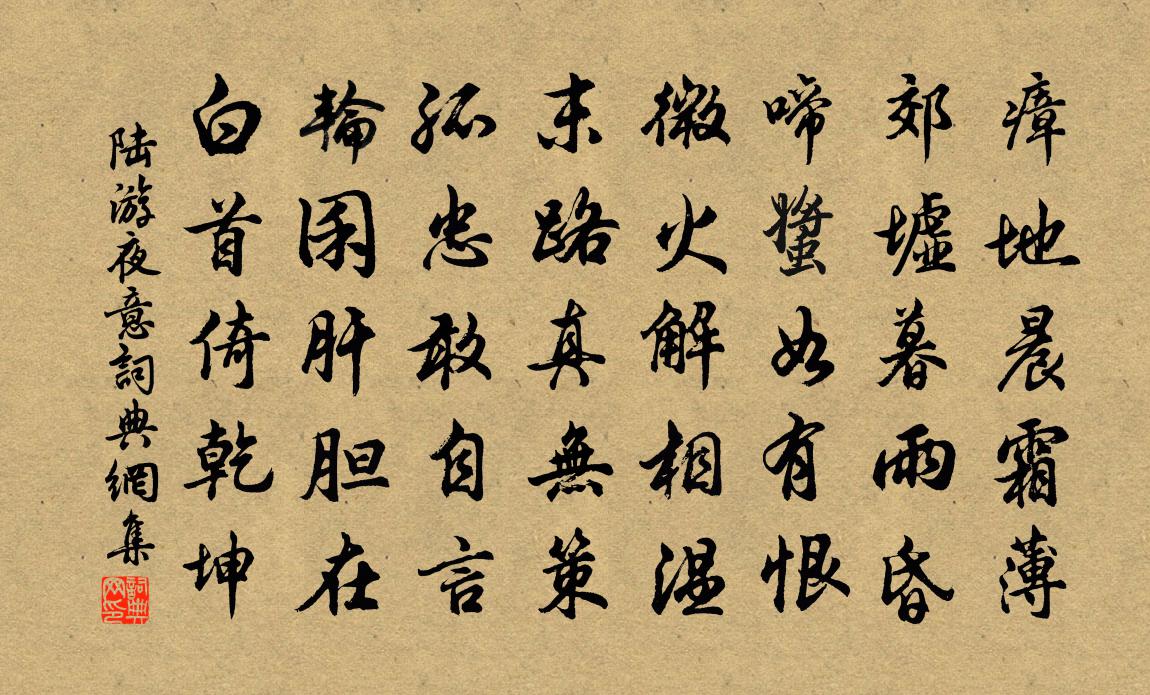 瘴地晨霜薄
郊墟暮雨昏
啼螿如有恨
微火解相温
末路真無策
孤忠敢自言
輪囷肝胆在
白首倚乾坤
陆游夜意詞典網集
詞典网印